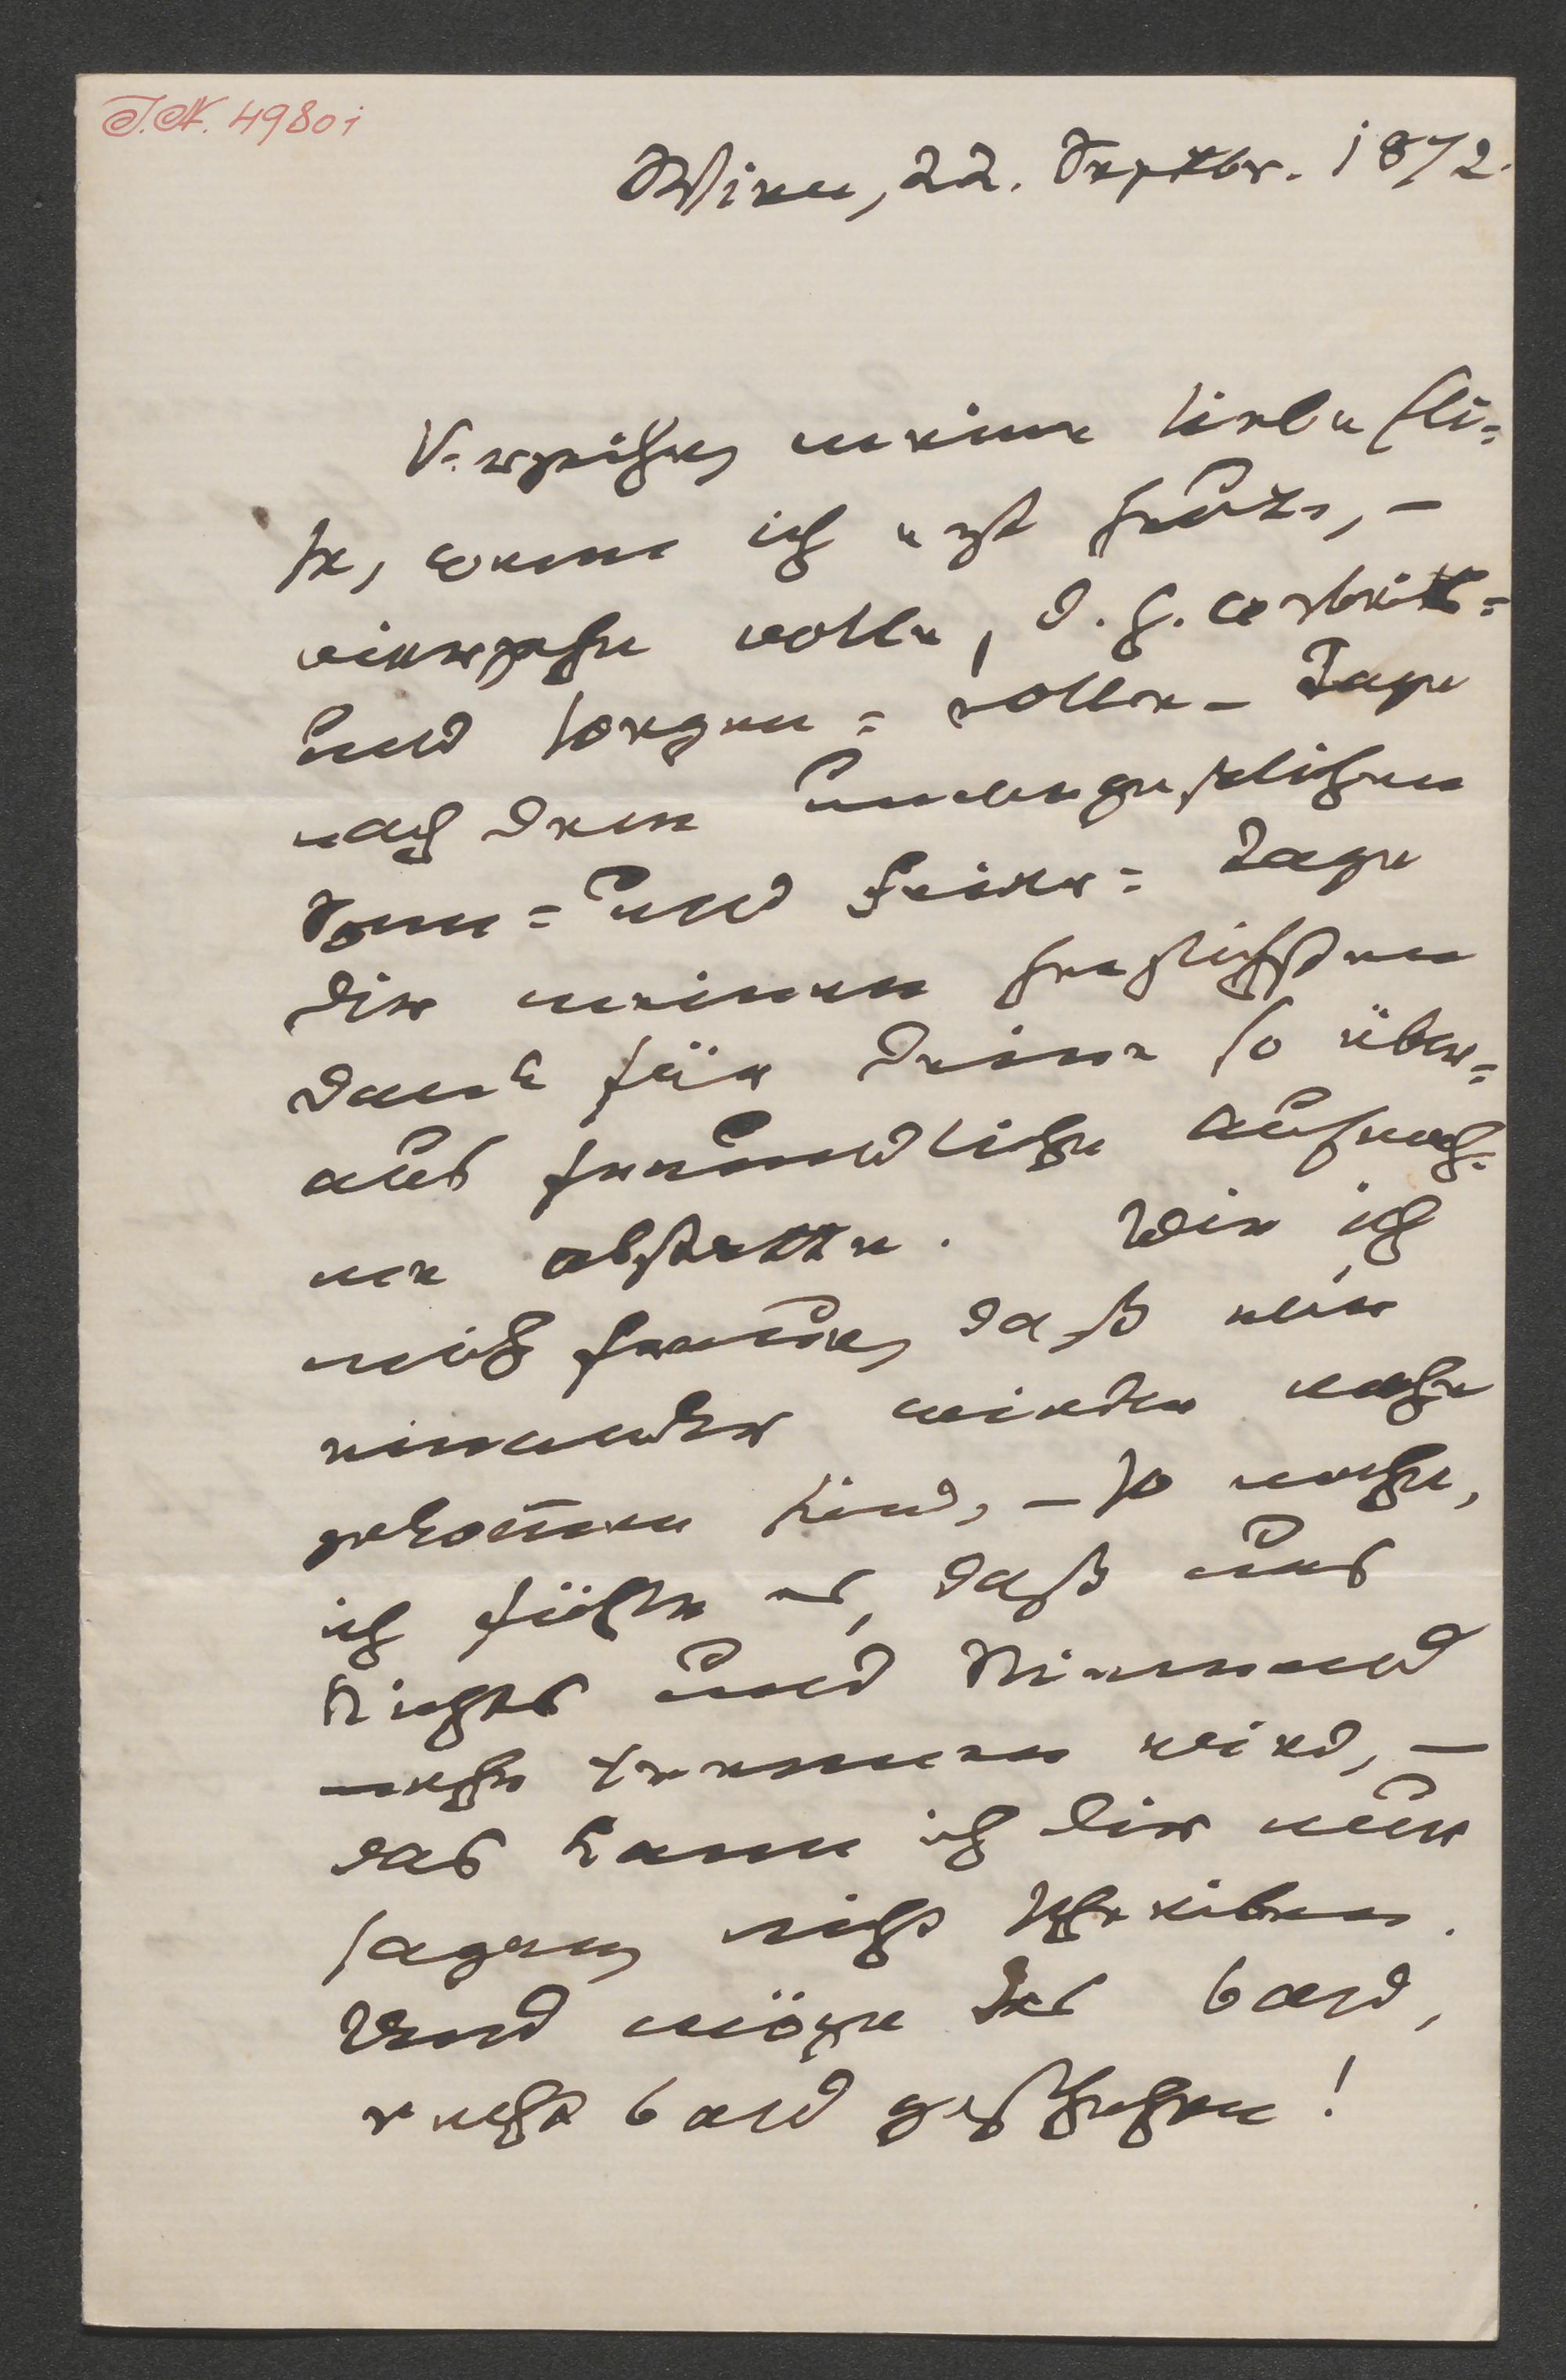 J.N. 49801
Wien, 22. Septbr. 1872.
Verzeihe, meine liebe Eli=
se, wenn ich erst heute, –
vierzehn volle, d. h. arbeits=
und sorgen=volle – Tage
nach dem unvergeßlichen
Sonn= und Feier=Tage
Dir meinen herzlichsten
Dank für Deine so über=
aus freundliche Aufnah=
me abstatte. Wie ich
mich freue, daß wir
einander wieder nahe
gekom̄en sind, – so nahe,
ich fühle es, daß uns
Nichts und Niemand
mehr trennen wird, –
das kann ich Dir nur
sagen, nicht schreiben.
Und möge das bald,
recht bald geschehen!